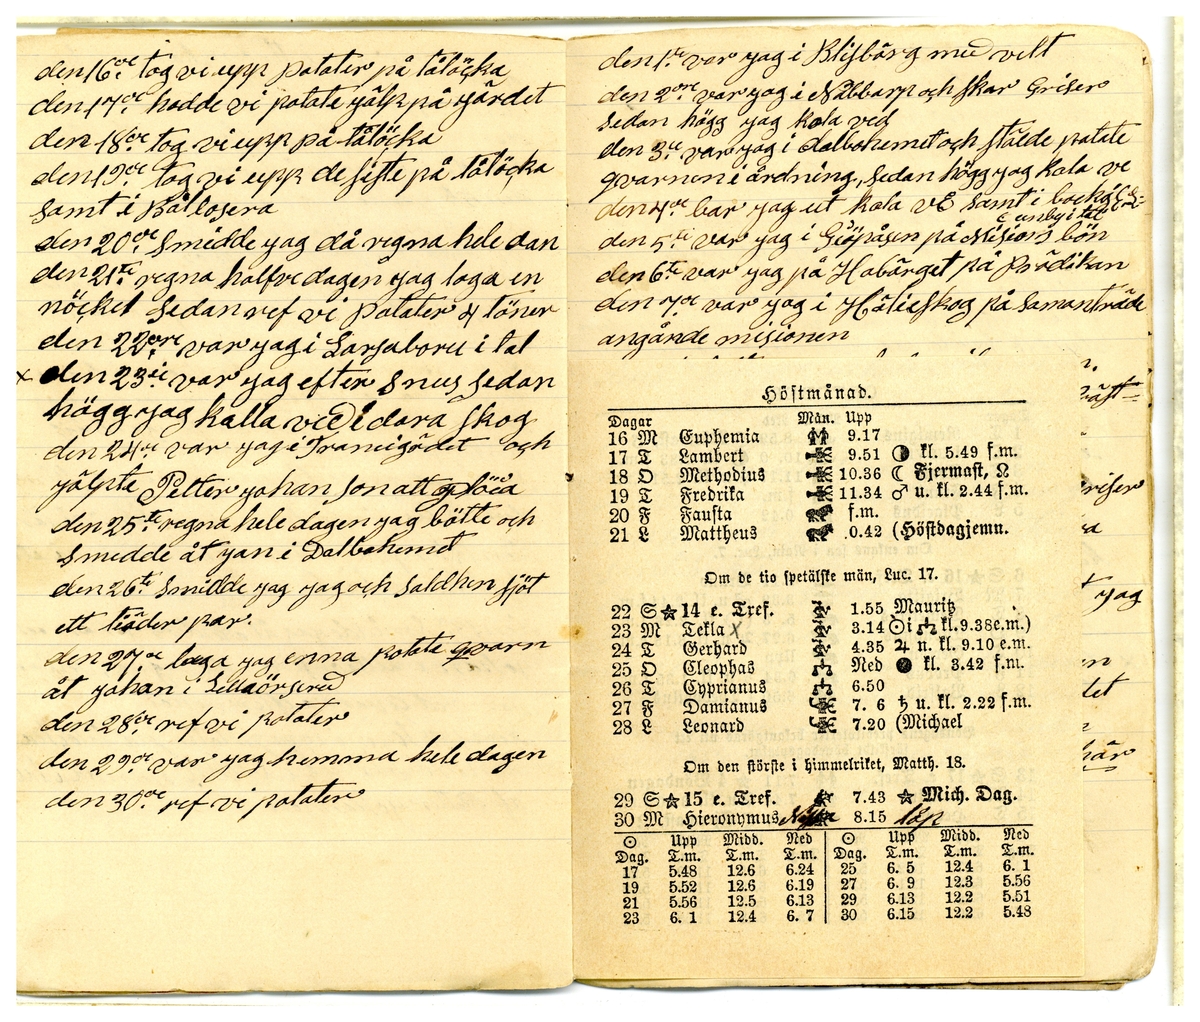 den 16de tog vi upp potater på tåtöcka
den 17de hadde vi potate jälp på gärdet
den 18de tog vi upp på tåtöcka
den 19de tog vi upp de siste på tåtöcka
samt i Bållosera
den 20de Smidde yag då regna hele dan
den 21ti regna halfve dagen yag laga en
nöckel Sedan ref vi potater 4 töner
den 22dre var yag i Larsaboru i tal
x den 23di var yag efter Snus Sedan
högg yag kalla ved i dora Skog
den 24de var yag i Transigödet och
jälpte Petter yohan Jon att plöia
den 25te regna hele dagen yag bötte och
Smedde åt yan i Dalbohemet
den 26te Smidde yag yag och Saldhen Sjöt
ett tiäder par.
den 27de laga yag enna potate qvarn
åt yohan i Lillaörsered
den 28de ref vi potater
den 29de var yag hemma hele dagen
den 30de ref vi potater
den 1te var yag i Blisbärg med velt
den 2dre var yag i Näbbarp och Skar Griser
Sedan högg yag kola ved
den 3de var yag i dalbohemet och Stälde potate
qvarnen i ördning, Sedan högg yag kola ve
den 4de bar yag ut kola ve Samt i bockö
den 5te var yag i Giöpåsen på Misions bön
den 6te var yag på Habärget på Prädikan
den 7de var yag i Håtieskog på Samanträde
angånde misionen
Höstmånad.
Dagar Mån. Upp
16 M Euphemia ♊ 9.17
17 T Lambert 9.51 ◑ kl. 5.49 f.m.
18 O Methodius 10.36 ☾ Fjermast, ☊
19 T Fredrika 11.34 ♂ u. kl. 2.44 f.m.
20 F Fausta f.m.
21 L Mattheus 0.42 (Höstdagjemn.
Om de tio spetälske män, Luc. 17.
22 S ☆ 14 e. Tref. 1.55 Mauritz
23 M Tekla X 3.14 ☉ i ♎ kl. 9.38 e.m.)
24 T Gerhard 4.35 ♃ n. kl. 9.10 e.m.
25 O Cleophas Ned ● kl. 3.42 f.m.
26 T Cyprianus 6.50
27 F Damianus 7. 6 ♄ u. kl. 2.22 f.m.
28 L Leonard 7.20 (Michael
Om den störste i himmelriket, Matth. 18.
29 S ☆ 15 e. Tref. 7.43 ☆ Mich. Dag.
30 M Hieronymus 8.15
☉ Upp Midd. Ned ☉ Upp Midd. Ned
Dag. T.m. T.m. T.m. Dag. T.m. T.m. T.m.
17 5.48 12.6 6.24 25 6. 5 12.4 6. 1
19 5.52 12.6 6.19 27 6. 9 12.3 5.56
21 5.56 12.5 6.13 29 6.13 12.2 5.51
23 6. 1 12.4 6. 7 30 6.15 12.2 5.48
yag